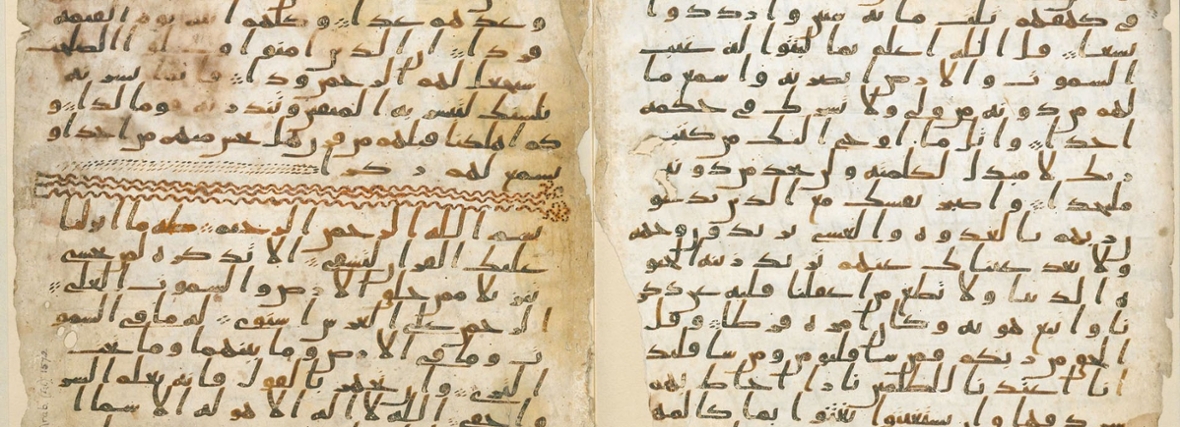 في كهفهم ثلث مائة سنين وازدادوا
تسعا قل الله اعلم بما لبثوا له غيب
السموت والارض ابصر به واسمع ما
لهم من دونه من ولي ولا يشرك في حكمه
احدا واتل ما اوحي اليك من كتب
ربك لا مبدل لكلمته ولن تجد من دونه
ملتحدا واصبر نفسك مع الذين يدعو
ن ربهم بالغدوة والعشي يريدون وجهه
ولا تعد عيناك عنهم تريد زينة الحيو
ة الدنيا ولا تطع من اغفلنا قلبه عن ذكر
نا واتبع هويه وكان امره فرطا وقل
الحق من ربكم فمن شا فليومن ومن شا فليكفر
انا اعتدنا للظلمين نارا احاط بهم
سرادقها وان يستغيثوا يغثوا بما كالمهل
وعدهم عدا وكلهم اتيه يوم القيمة
فردا ان الذين امنوا وعملوا الصلحت
سيجعل لهم الرحمن ودا فانما يسرنه
بلسنك لتبشر به المتقين وتنذر به قوما لدا و
كم اهلكنا قبلهم من قرن هل تحس منهم من احد او
تسمع لهم ركزا
بسم الله الرحمن الرحيم طه ما انزلنا
عليك القران لتشقى الا تذكرة لمن يخشى
تنزيلا ممن خلق الارض والسموت العلى
الرحمن على العرش استوى له ما في السمو
ت وما في الارض وما بينهما وما تحت
الثرى وان تجهر بالقول فانه يعلم السر
واخفى الله لا اله الا هو له الاسما ا